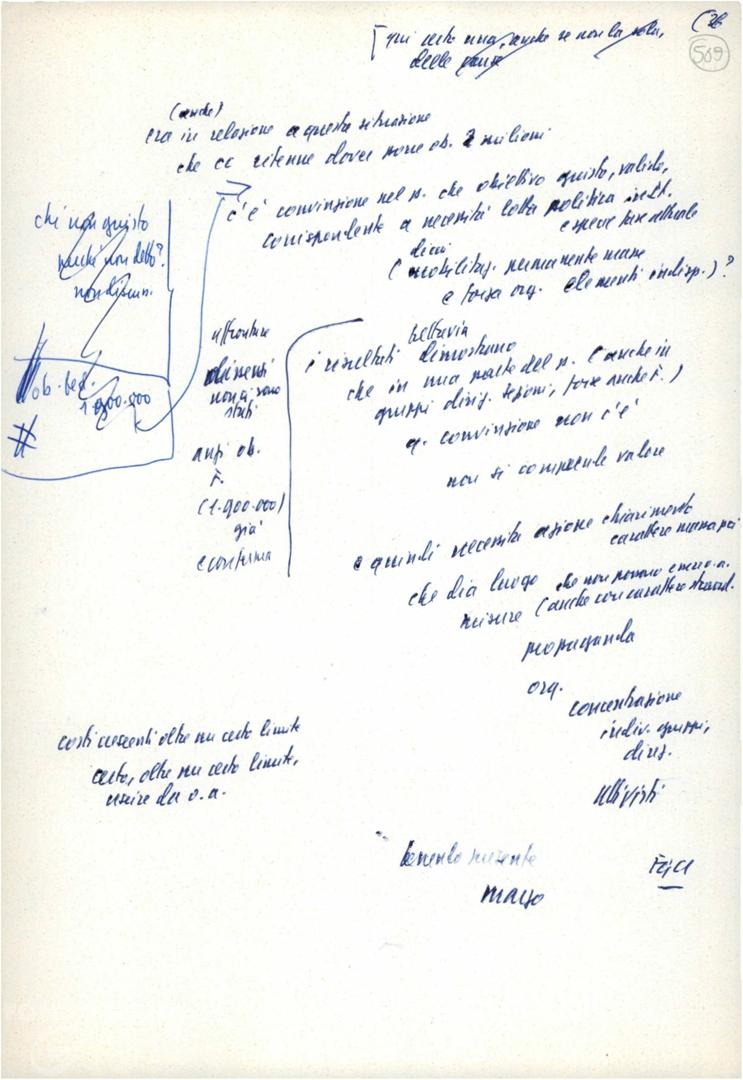 qui certo una, anche se non la sola,
delle cause
509
(anche)
era in relazione a questa situazione
che CC ritenne dover porre ob. 2 milioni
c'è convinzione nel p. che obiettivo giusto, valido,
corrispondente a necessità lotta politica in It.
e specie fase attuale
( mobilitaz. permanente mane
e forza org. elementi indisp.) ?
chi non giusto
perché non detto?
non discus.
# ob. fed.
1.900.000
#
affrontare
dimensi
non ci sono
stati
anzi ob.
F.
(1.900.000)
già
conferma
tuttavia
i risultati dimostrano
che in una parte del p. (anche in
gruppi dirig. sezioni, forse anche F.)
q. convinzione non c'è
non si comprende valore
e quindi necessità azione chiarimento
carattere
che dia luogo che non possono essere o.a.
misure (anche con carattere straord.
propaganda
org.
concentrazione
indiv. gruppi,
dirig.
attivisti
costi crescenti oltre un certo limite
certo, oltre un certo limite,
uscire da o.a.
tenendo presente
marzo
FGCI